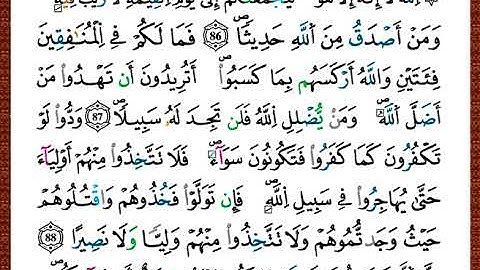 وَمَنْ أَصْدَقُ مِنَ اَ۬للَّهِ حَدِيثاٗۖ 86 فَمَا لَكُمْ فِي اِ۬لْمُنَٰفِقِينَ
فِئَتَيْنِ وَاللَّهُ أَرْكَسَهُم بِمَا كَسَبُوٓاْۖ أَتُرِيدُونَ أَن تَهْدُواْ مَنْ
أَضَلَّ اَ۬للَّهُۖ وَمَنْ يُّضْلِلِ اِ۬للَّهُ فَلَن تَجِدَ لَهُۥ سَبِيلاٗۖ 87 وَدُّواْ لَوْ
تَكْفُرُونَ كَمَا كَفَرُواْ فَتَكُونُونَ سَوَآءٗۖ فَلَا تَتَّخِذُواْ مِنْهُمُۥٓ أَوْلِيَآءَ
حَتَّىٰ يُهَاجِرُواْ فِي سَبِيلِ اِ۬للَّهِۖ فَإِن تَوَلَّوْاْ فَخُذُوهُمْ وَاقْتُلُوهُمْ
حَيْثُ وَجَدتُّمُوهُمْ وَلَا تَتَّخِذُواْ مِنْهُمْ وَلِيّاٗ وَلَا نَصِيراً 88